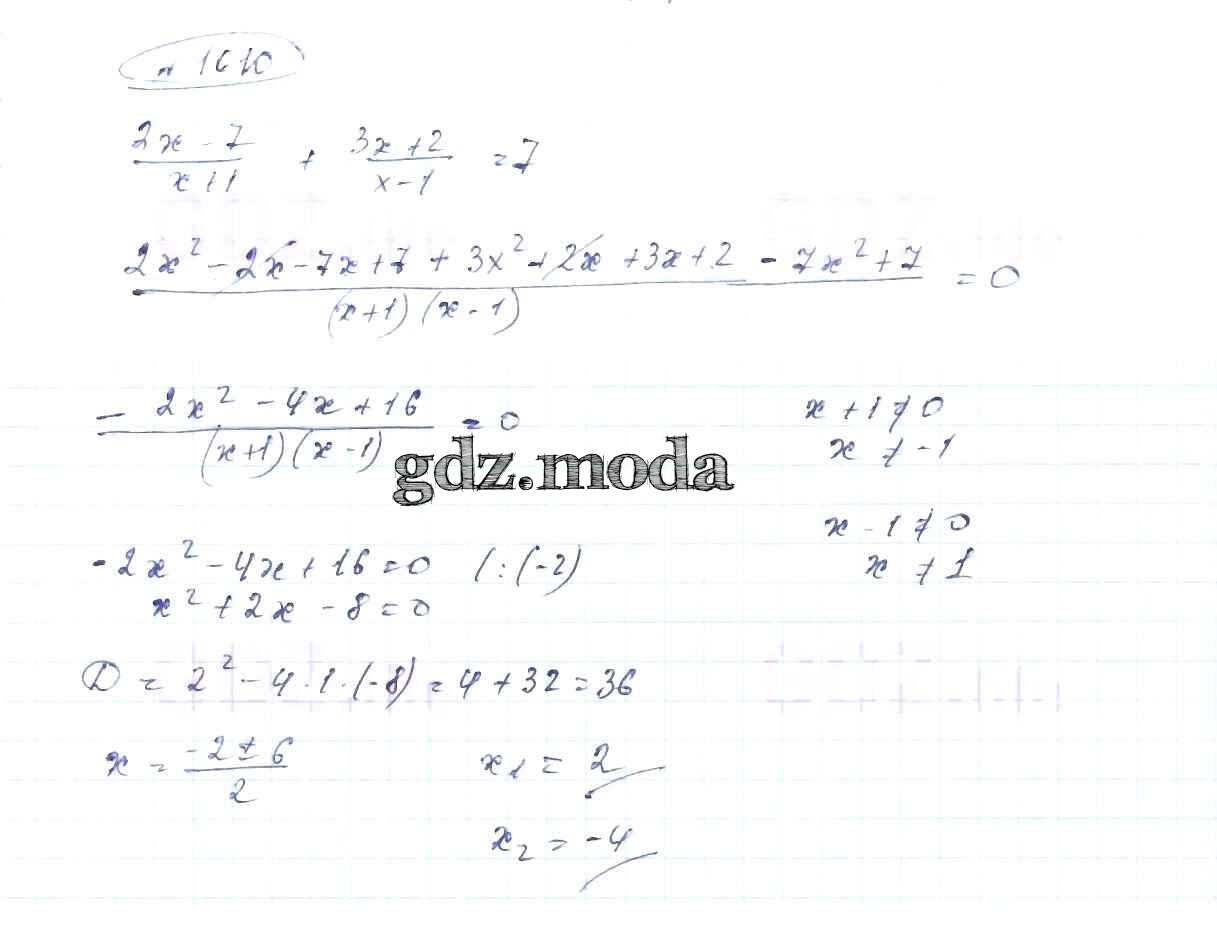 № 1610
(2x - 7)/(x + 1) + (3x + 2)/(x - 1) = 7
(2x² - 2x - 7x + 7 + 3x² + 2x + 3x + 2 - 7x² + 7)/((x+1)(x-1)) = 0
(- 2x² - 4x + 16)/((x+1)(x-1)) = 0
x + 1 ≠ 0
x ≠ -1
gdz.moda
x - 1 ≠ 0
x ≠ 1
-2x² - 4x + 16 = 0 (:(-2)
x² + 2x - 8 = 0
D = 2² - 4·1·(-8) = 4 + 32 = 36
x = (-2 ± 6)/2
x₁ = 2
x₂ = -4